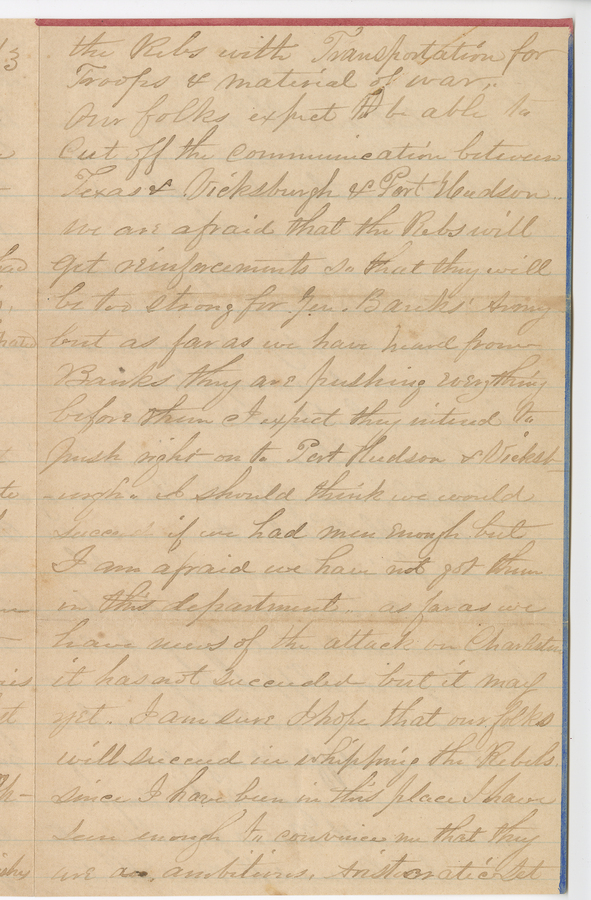 the Rebs with Transportation for
Troops & material of war,.
Our folks expect to be able to
Cut off the communication between
Texas & Vicksburgh & Port Hudson..
we are afraid that the Rebs will
get reinforcements so that they will
be too strong for Gen. Banks' Army
but as far as we have heard from
Banks they are pushing everything
before them I expect they intend to
push right on to Port Hudson & Vicksb-
urgh. I should think we would
Succeed if we had men enough but
I am afraid we have not got them
in this department.. as far as we
have news of the attack on Charleston
it has not succeeded but it may
yet. I am sure I hope that our folks
will succeed in whipping the Rebels.
since I have been in this place I have
seen enough to convince me that they
are an ambitious, aristocratic set